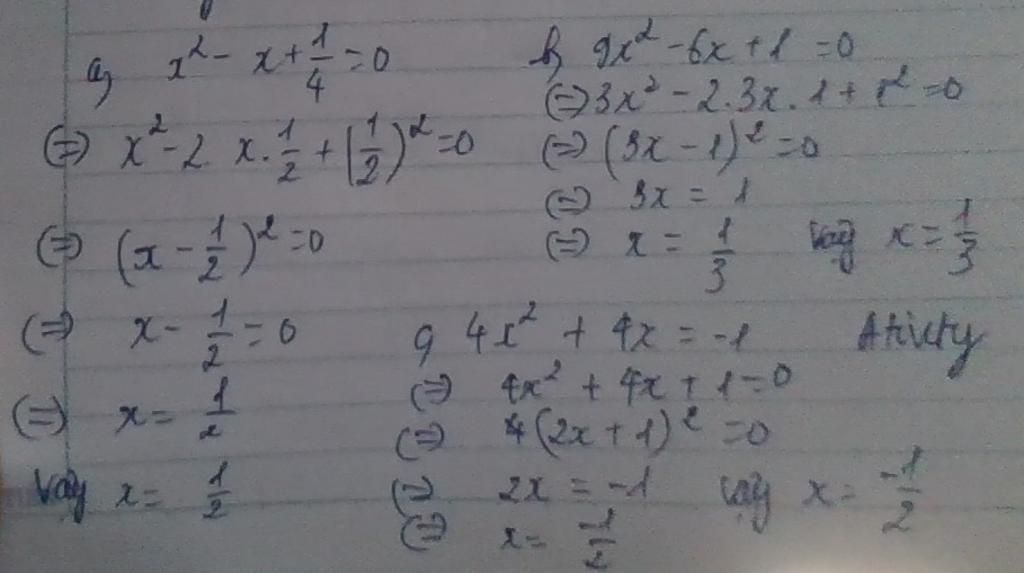 a, x² - x + 1/4 = 0
(=) x² - 2 x. 1/2 + (1/2)² = 0
(=) (x - 1/2)² = 0
(=) x - 1/2 = 0
(=) x = 1/2
Vậy x = 1/2
b, 9x² - 6x + 1 = 0
(=) 3x² - 2.3x.1 + 1² = 0
(=) (3x - 1)² = 0
(=) 3x = 1
(=) x = 1/3 Vậy x = 1/3
c, 4x² + 4x = -1
(=) 4x² + 4x + 1 = 0
(=) (2x + 1)² = 0
(=) 2x = -1 Vậy x = -1/2
(=) x = -1/2